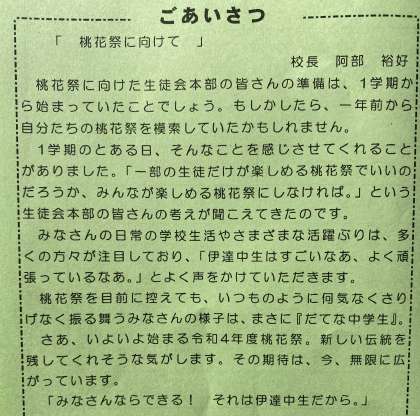 ごあいさつ
「 桃花祭に向けて 」
校長 阿部 裕好
桃花祭に向けた生徒会本部の皆さんの準備は、1学期か
ら始まっていたことでしょう。もしかしたら、一年前から
自分たちの桃花祭を模索していたかもしれません。
1学期のとある日、そんなことを感じさせてくれることが
ありました。「一部の生徒だけが楽しめる桃花祭でいいの
だろうか、みんなが楽しめる桃花祭にしなければ。」という
生徒会本部の皆さんの考えが聞こえてきたのです。
みなさんの日常の学校生活やさまざまな活躍ぶりは、多
くの方々が注目しており、「伊達中生はすごいなあ、よく頑
張っているなあ。」とよく声をかけていただきます。
桃花祭を目前に控えても、いつものように何気なくさり
げなく振る舞うみなさんの様子は、まさに『だてな中学生』。
さあ、いよいよ始まる令和4年度桃花祭。新しい伝統を
残してくれそうな気がします。その期待は、今、無限に広
がっています。
「みなさんならできる! それは伊達中生だから。」